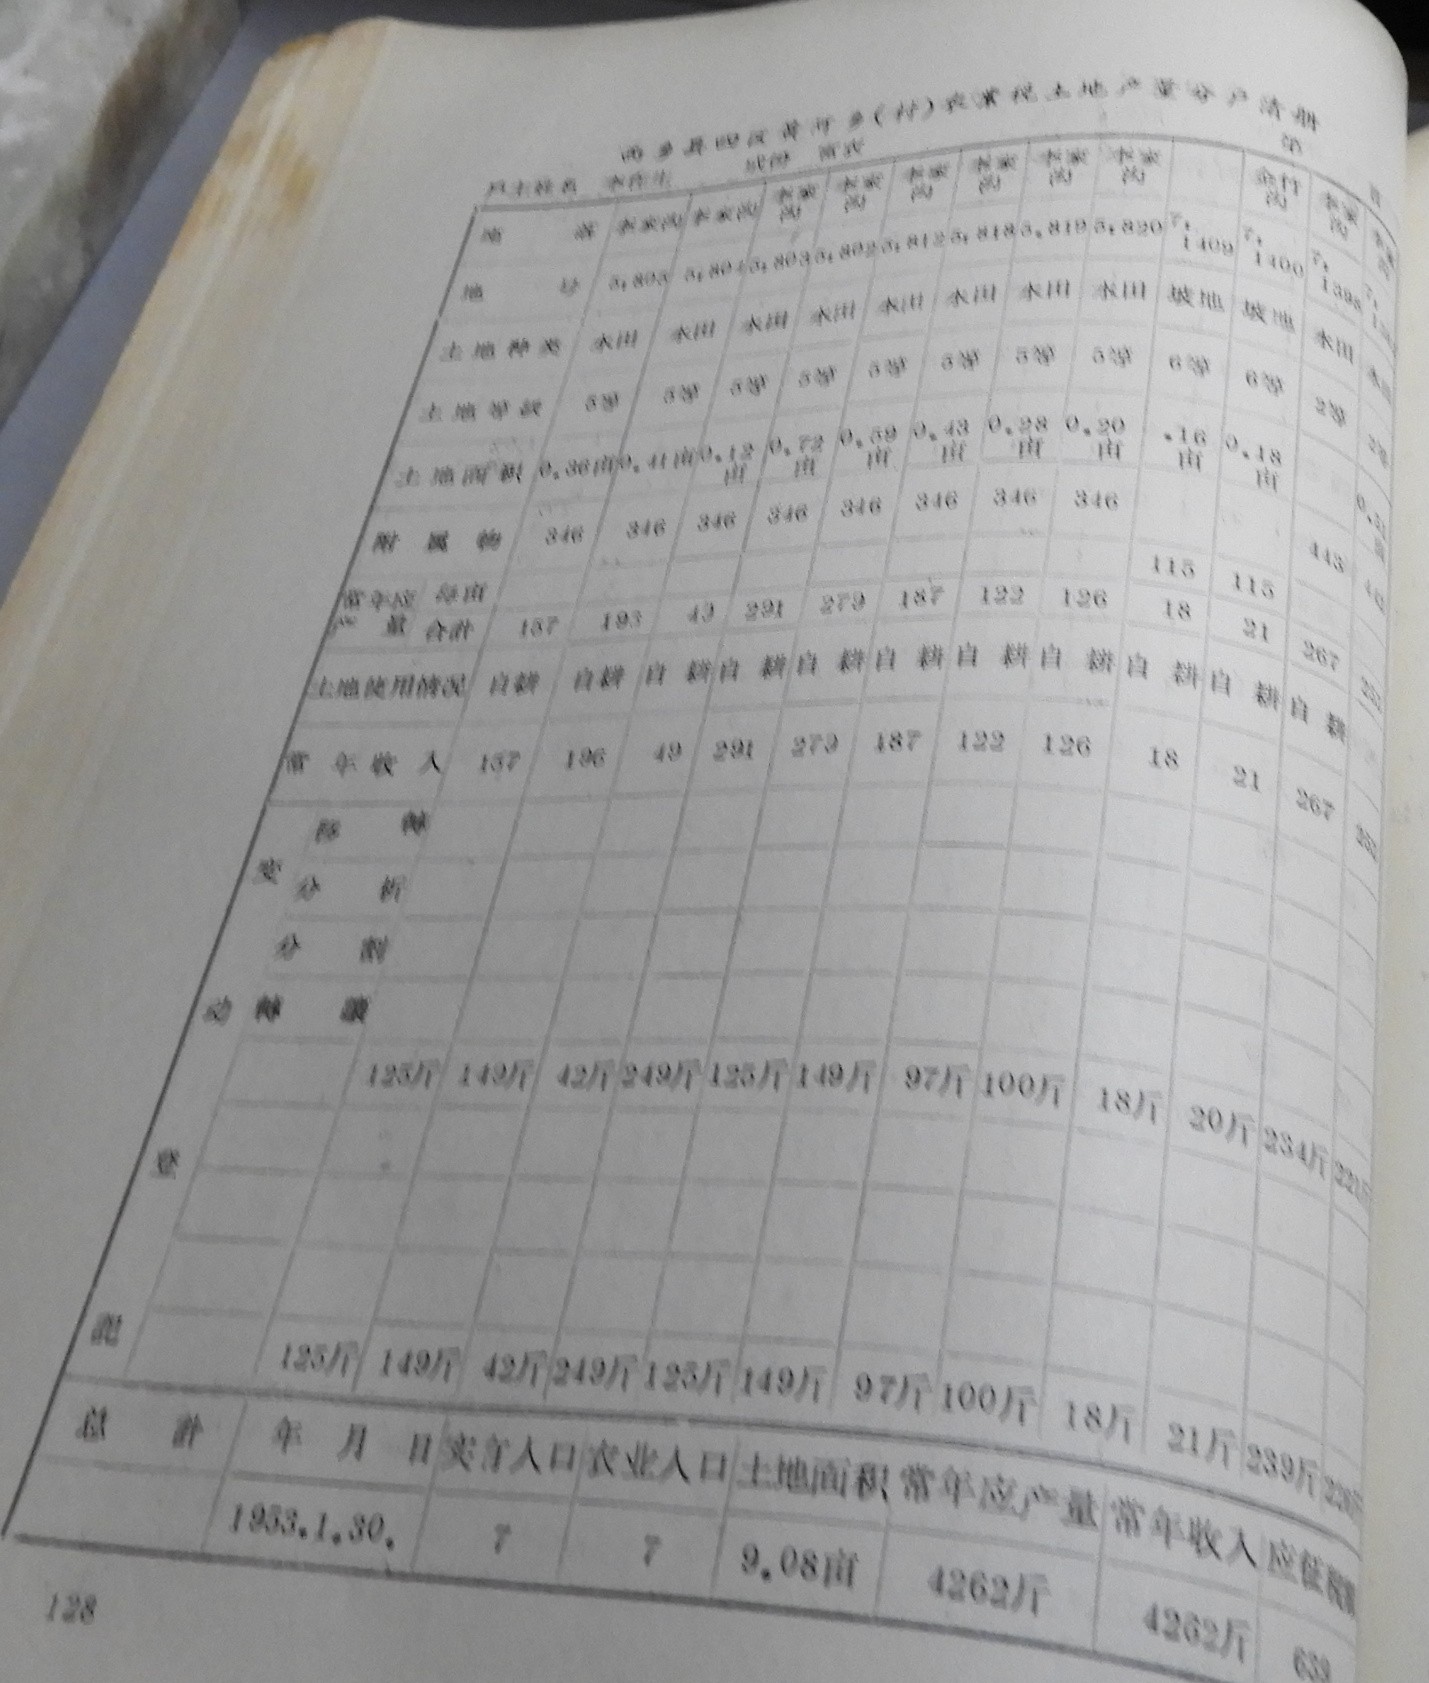 西乡县四区黄河乡(村)农业税土地产量分户清册
户主姓名 成份 富农 第 页
地 落 李家沟 李家沟 李家沟 李家沟 李家沟 李家沟 李家沟 李家沟 金竹沟 李家沟
地 号 5,805 5,804 5,803 5,802 5,812 5,818 5,819 5,820 7,1409 7,1400 7,1398
土地种类 水田 水田 水田 水田 水田 水田 水田 水田 坡地 坡地 水田 水田
土地等级 5等 5等 5等 5等 5等 5等 5等 5等 6等 6等 2等 2等
土地面积 0.36亩 0.41亩 0.12亩 0.72亩 0.59亩 0.43亩 0.28亩 0.20亩 .16亩 0.18亩
附属物 346 346 346 346 346 346 346 346 443
常年应产量 每亩 115 115
合計 157 193 49 291 279 187 122 126 18 21 267
土地使用情况 自耕 自耕 自耕 自耕 自耕 自耕 自耕 自耕 自耕 自耕 自耕
常年收入 157 196 49 291 279 187 122 126 18 21 267
变
分 析
分 割
动 轉 讓
125斤 149斤 42斤 249斤 125斤 149斤 97斤 100斤 18斤 20斤 234斤
登
記
125斤 149斤 42斤 249斤 125斤 149斤 97斤 100斤 18斤 21斤 239斤
总 計 年 月 日 实有人口 农业人口 土地面积 常年应产量 常年收入 应征税额
1953.1.30. 7 7 9.08亩 4262斤 4262斤 639
128